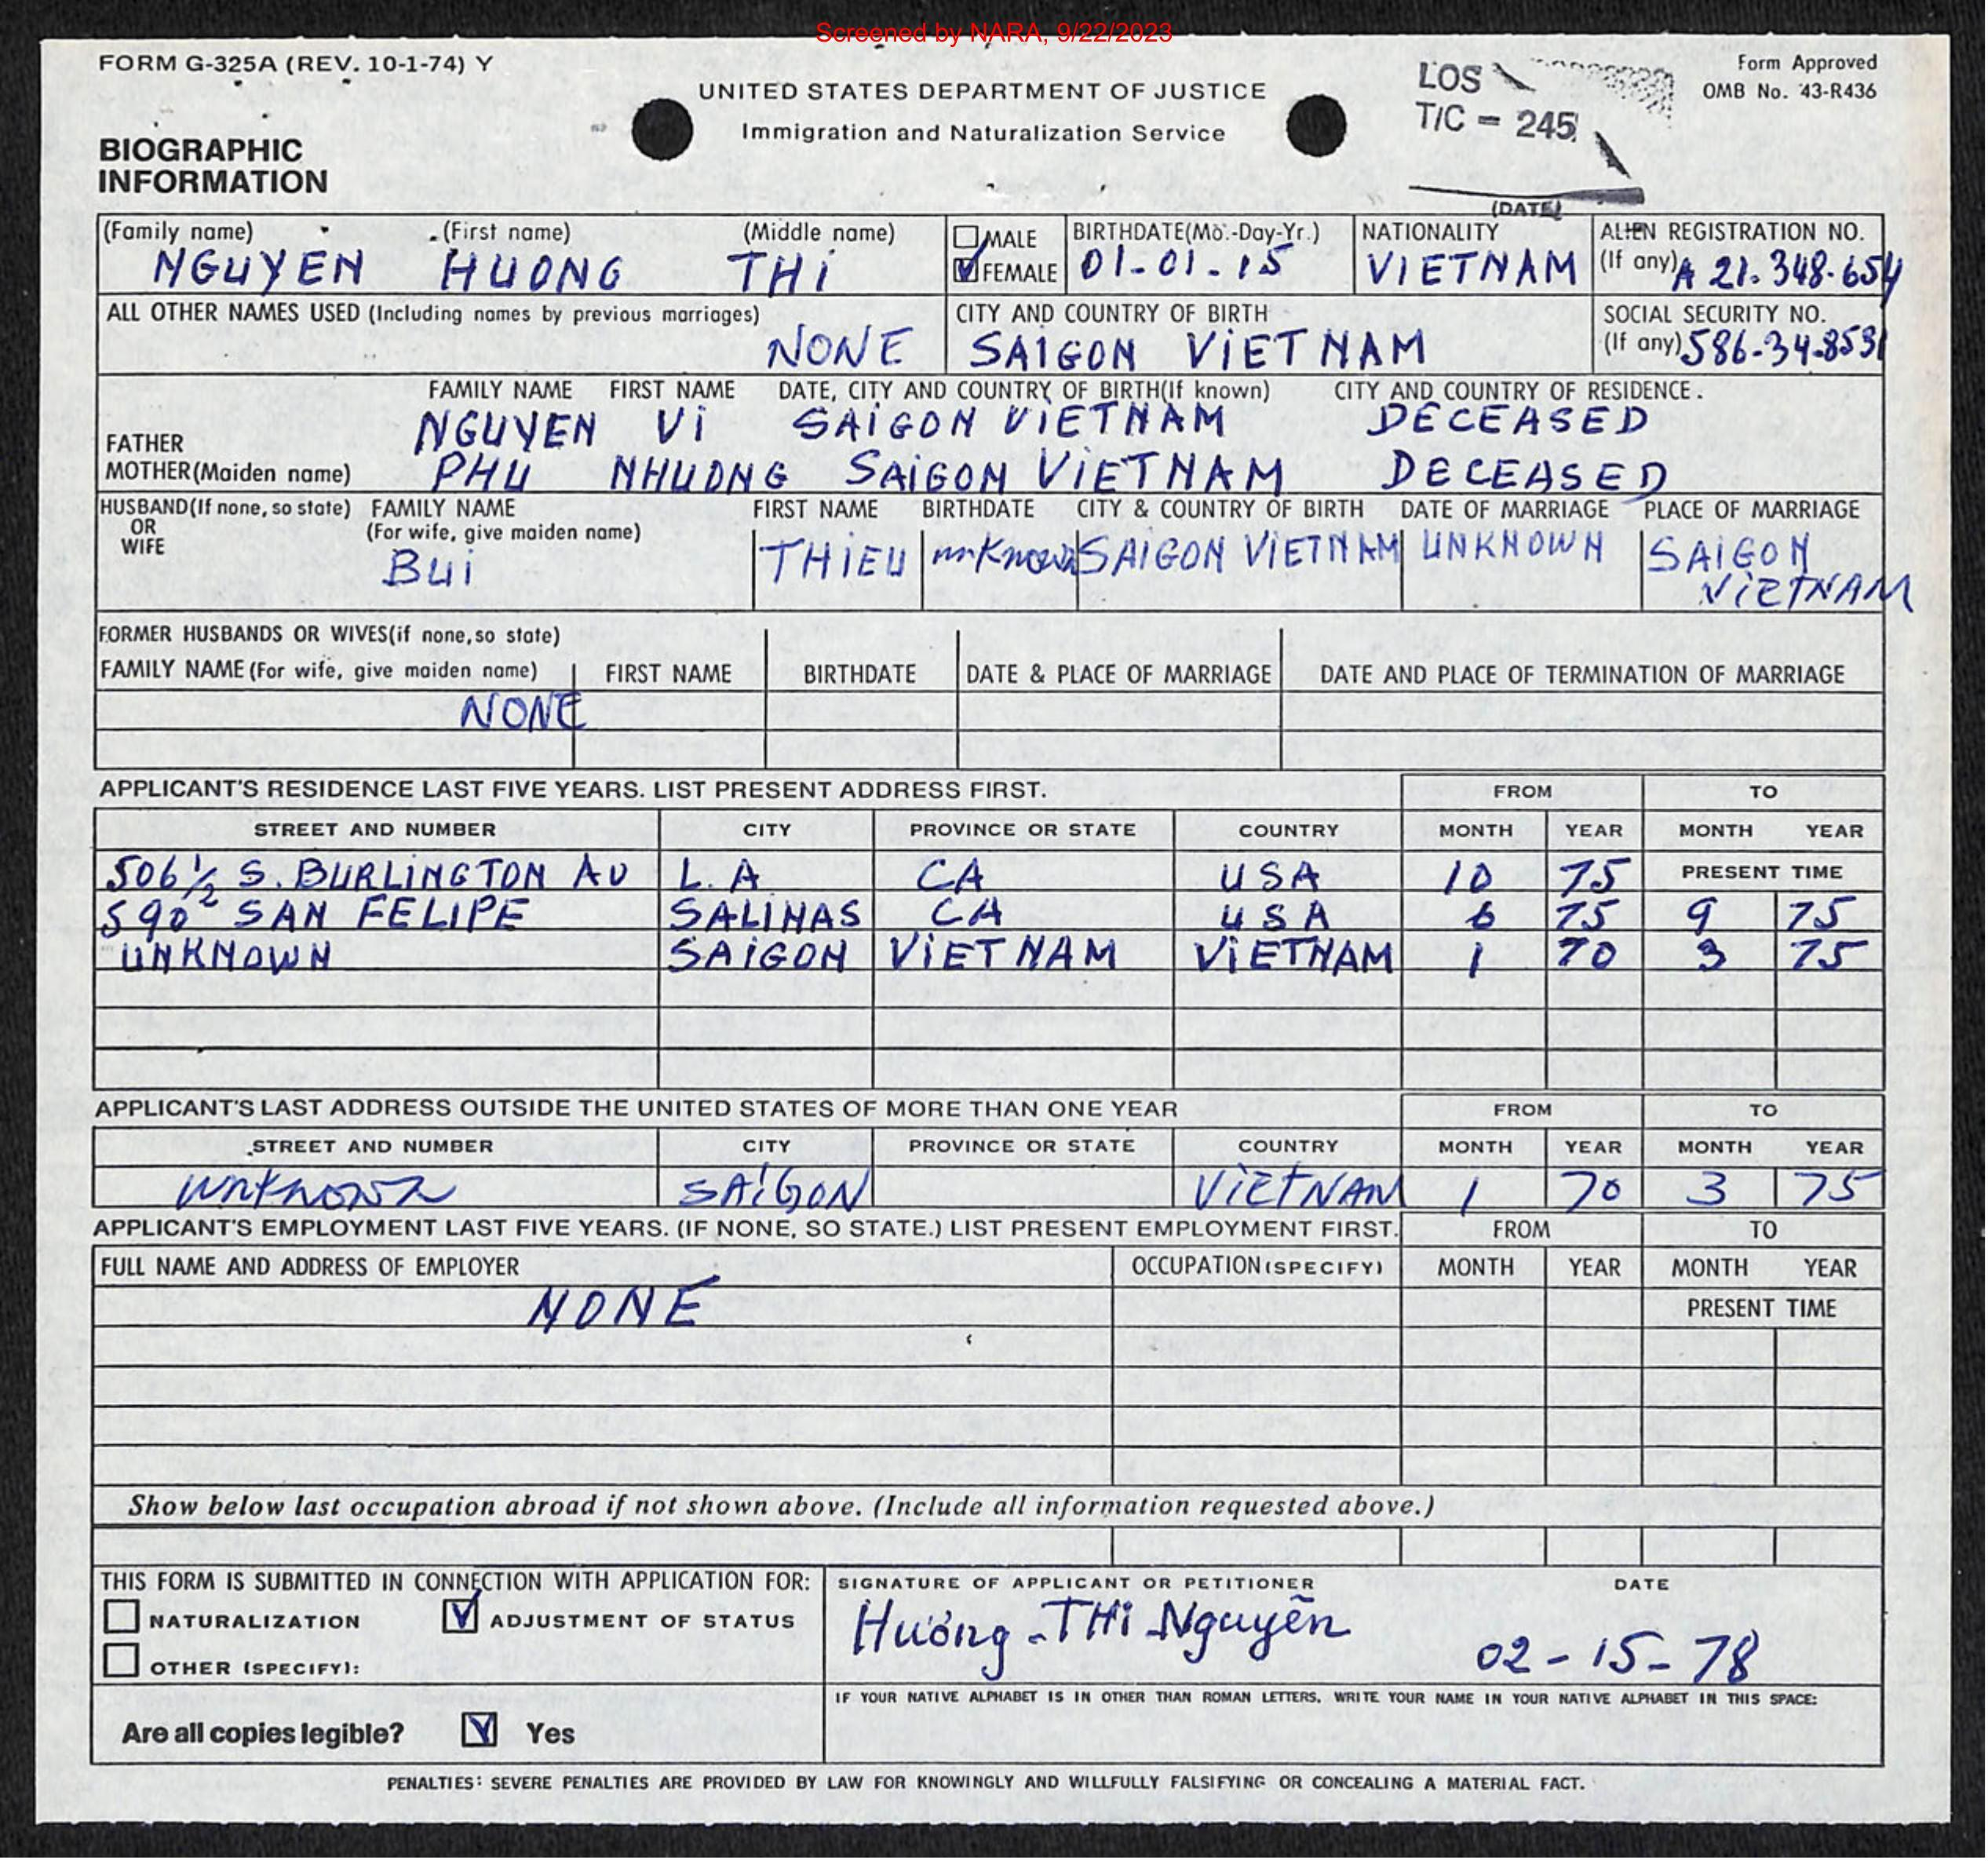 Screened by NARA, 9/22/2023
FORM G-325A (REV. 10-1-74) Y
UNITED STATES DEPARTMENT OF JUSTICE
Immigration and Naturalization Service
LOS
T/C - 245
(DATE)
Form Approved
OMB No. 43-R436
BIOGRAPHIC
INFORMATION
(Family name) (First name) (Middle name) MALE BIRTHDATE(Mo.-Day-Yr.) NATIONALITY ALIEN REGISTRATION NO.
NGUYEN HUONG THI FEMALE 01-01-15 VIETNAM (If any) A 21.348.654
ALL OTHER NAMES USED (Including names by previous marriages) CITY AND COUNTRY OF BIRTH SOCIAL SECURITY NO.
NONE SAIGON VIETNAM (If any) 586-34-8531
FAMILY NAME FIRST NAME DATE, CITY AND COUNTRY OF BIRTH(If known) CITY AND COUNTRY OF RESIDENCE.
FATHER NGUYEN Vi SAIGON VIETNAM DECEASED
MOTHER(Maiden name) PHU NHUONG SAIGON VIETNAM DECEASED
HUSBAND(If none, so state) FAMILY NAME FIRST NAME BIRTHDATE CITY & COUNTRY OF BIRTH DATE OF MARRIAGE PLACE OF MARRIAGE
OR (For wife, give maiden name)
WIFE Bui THIEU unKnown SAIGON VIETNAM UNKNOWN SAIGON
VIETNAM
FORMER HUSBANDS OR WIVES(if none,so state)
FAMILY NAME (For wife, give maiden name) FIRST NAME BIRTHDATE DATE & PLACE OF MARRIAGE DATE AND PLACE OF TERMINATION OF MARRIAGE
NONE
APPLICANT'S RESIDENCE LAST FIVE YEARS. LIST PRESENT ADDRESS FIRST. FROM TO
STREET AND NUMBER CITY PROVINCE OR STATE COUNTRY MONTH YEAR MONTH YEAR
506 1/2 S. BURLINGTON AV L.A CA USA 10 75 PRESENT TIME
590 SAN FELIPE SALINAS CA USA 6 75 9 75
UNKNOWN SAIGON VIETNAM VIETNAM 1 70 3 75
APPLICANT'S LAST ADDRESS OUTSIDE THE UNITED STATES OF MORE THAN ONE YEAR FROM TO
STREET AND NUMBER CITY PROVINCE OR STATE COUNTRY MONTH YEAR MONTH YEAR
unknown SAIGON VIETNAM 1 70 3 75
APPLICANT'S EMPLOYMENT LAST FIVE YEARS. (IF NONE, SO STATE.) LIST PRESENT EMPLOYMENT FIRST. FROM TO
FULL NAME AND ADDRESS OF EMPLOYER OCCUPATION (SPECIFY) MONTH YEAR MONTH YEAR
NONE PRESENT TIME
Show below last occupation abroad if not shown above. (Include all information requested above.)
THIS FORM IS SUBMITTED IN CONNECTION WITH APPLICATION FOR: SIGNATURE OF APPLICANT OR PETITIONER DATE
NATURALIZATION ADJUSTMENT OF STATUS Hường-THi-Nguyễn 02-15-78
OTHER (SPECIFY):
IF YOUR NATIVE ALPHABET IS IN OTHER THAN ROMAN LETTERS, WRITE YOUR NAME IN YOUR NATIVE ALPHABET IN THIS SPACE:
Are all copies legible? Yes
PENALTIES: SEVERE PENALTIES ARE PROVIDED BY LAW FOR KNOWINGLY AND WILLFULLY FALSIFYING OR CONCEALING A MATERIAL FACT.